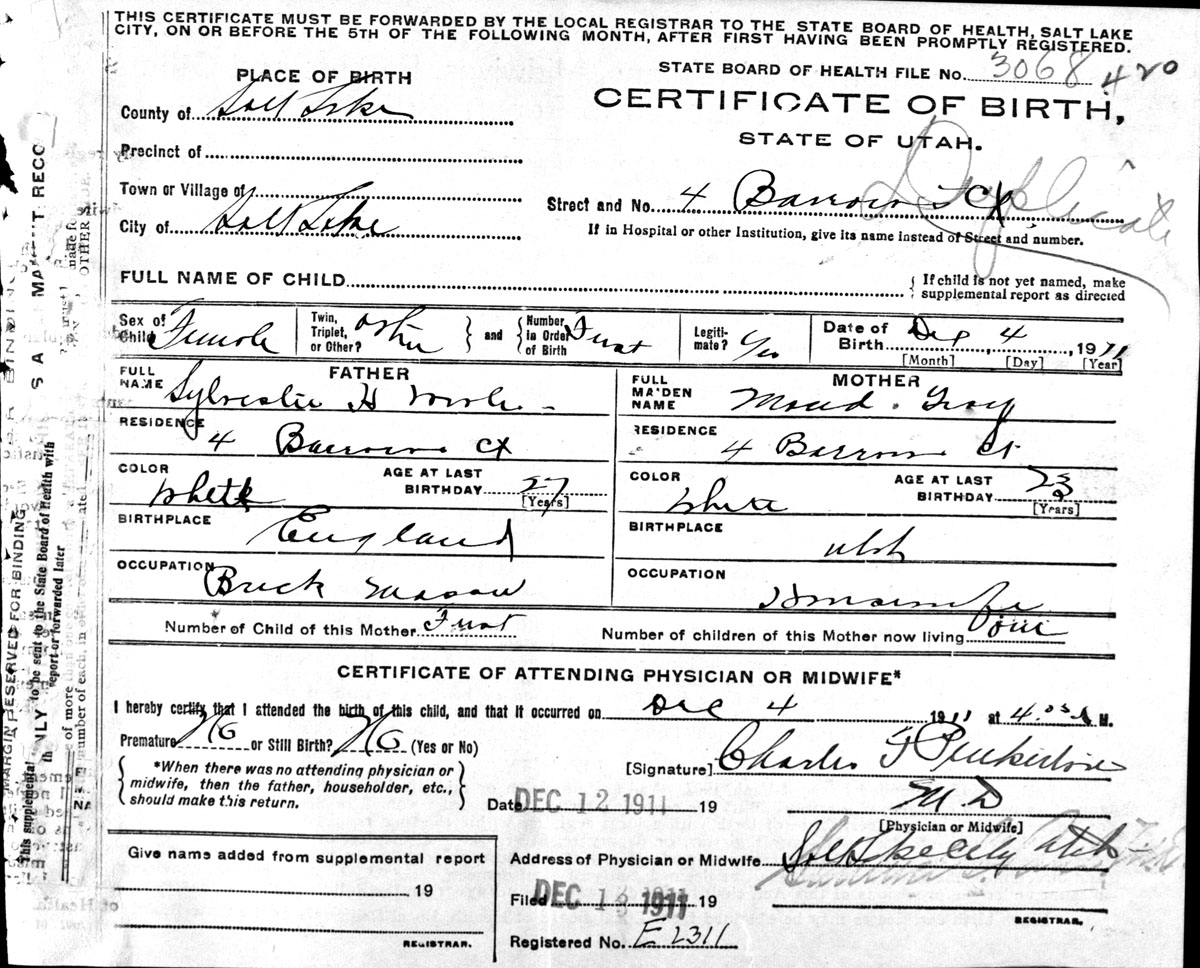 THIS CERTIFICATE MUST BE FORWARDED BY THE LOCAL REGISTRAR TO THE STATE BOARD OF HEALTH, SALT LAKE
CITY, ON OR BEFORE THE 5TH OF THE FOLLOWING MONTH, AFTER FIRST HAVING BEEN PROMPTLY REGISTERED.
PLACE OF BIRTH
STATE BOARD OF HEALTH FILE No. 3068 420
County of Salt Lake
CERTIFICATE OF BIRTH,
STATE OF UTAH.
Duplicate
Precinct of
Town or Village of
Street and No. 4 Barrows Ct
City of Salt Lake
If in Hospital or other Institution, give its name instead of Street and number.
FULL NAME OF CHILD
If child is not yet named, make
supplemental report as directed
Sex of Child Female
Twin, Triplet, or Other? other
and
Number in Order of Birth First
Legitimate? Yes
Date of Birth Dec 4, 1911
[Month] [Day] [Year]
FATHER
FULL NAME Sylvester H
MOTHER
FULL MAIDEN NAME Maud Gray
RESIDENCE 4 Barrows Ct
RESIDENCE 4 Barrows Ct
COLOR White
AGE AT LAST BIRTHDAY 27 [Years]
COLOR White
AGE AT LAST BIRTHDAY 23 [Years]
BIRTHPLACE England
BIRTHPLACE Utah
OCCUPATION Brick Mason
OCCUPATION Housewife
Number of Child of this Mother First
Number of children of this Mother now living
CERTIFICATE OF ATTENDING PHYSICIAN OR MIDWIFE*
I hereby certify that I attended the birth of this child, and that it occurred on Dec 4 1911 at 4.05 A M.
Premature No or Still Birth? No (Yes or No)
*When there was no attending physician or
midwife, then the father, householder, etc.,
should make this return.
[Signature] Charles F Pinkerton
M D
[Physician or Midwife]
Date DEC 12 1911 19
Give name added from supplemental report
Address of Physician or Midwife Salt Lake City Utah
19
Filed DEC 1911 19
REGISTRAR.
REGISTRAR.
Registered No. E 2311
MARGIN RESERVED FOR BINDING
This supplemental
ONLY to be sent to the State Board of Health with
report or forwarded later